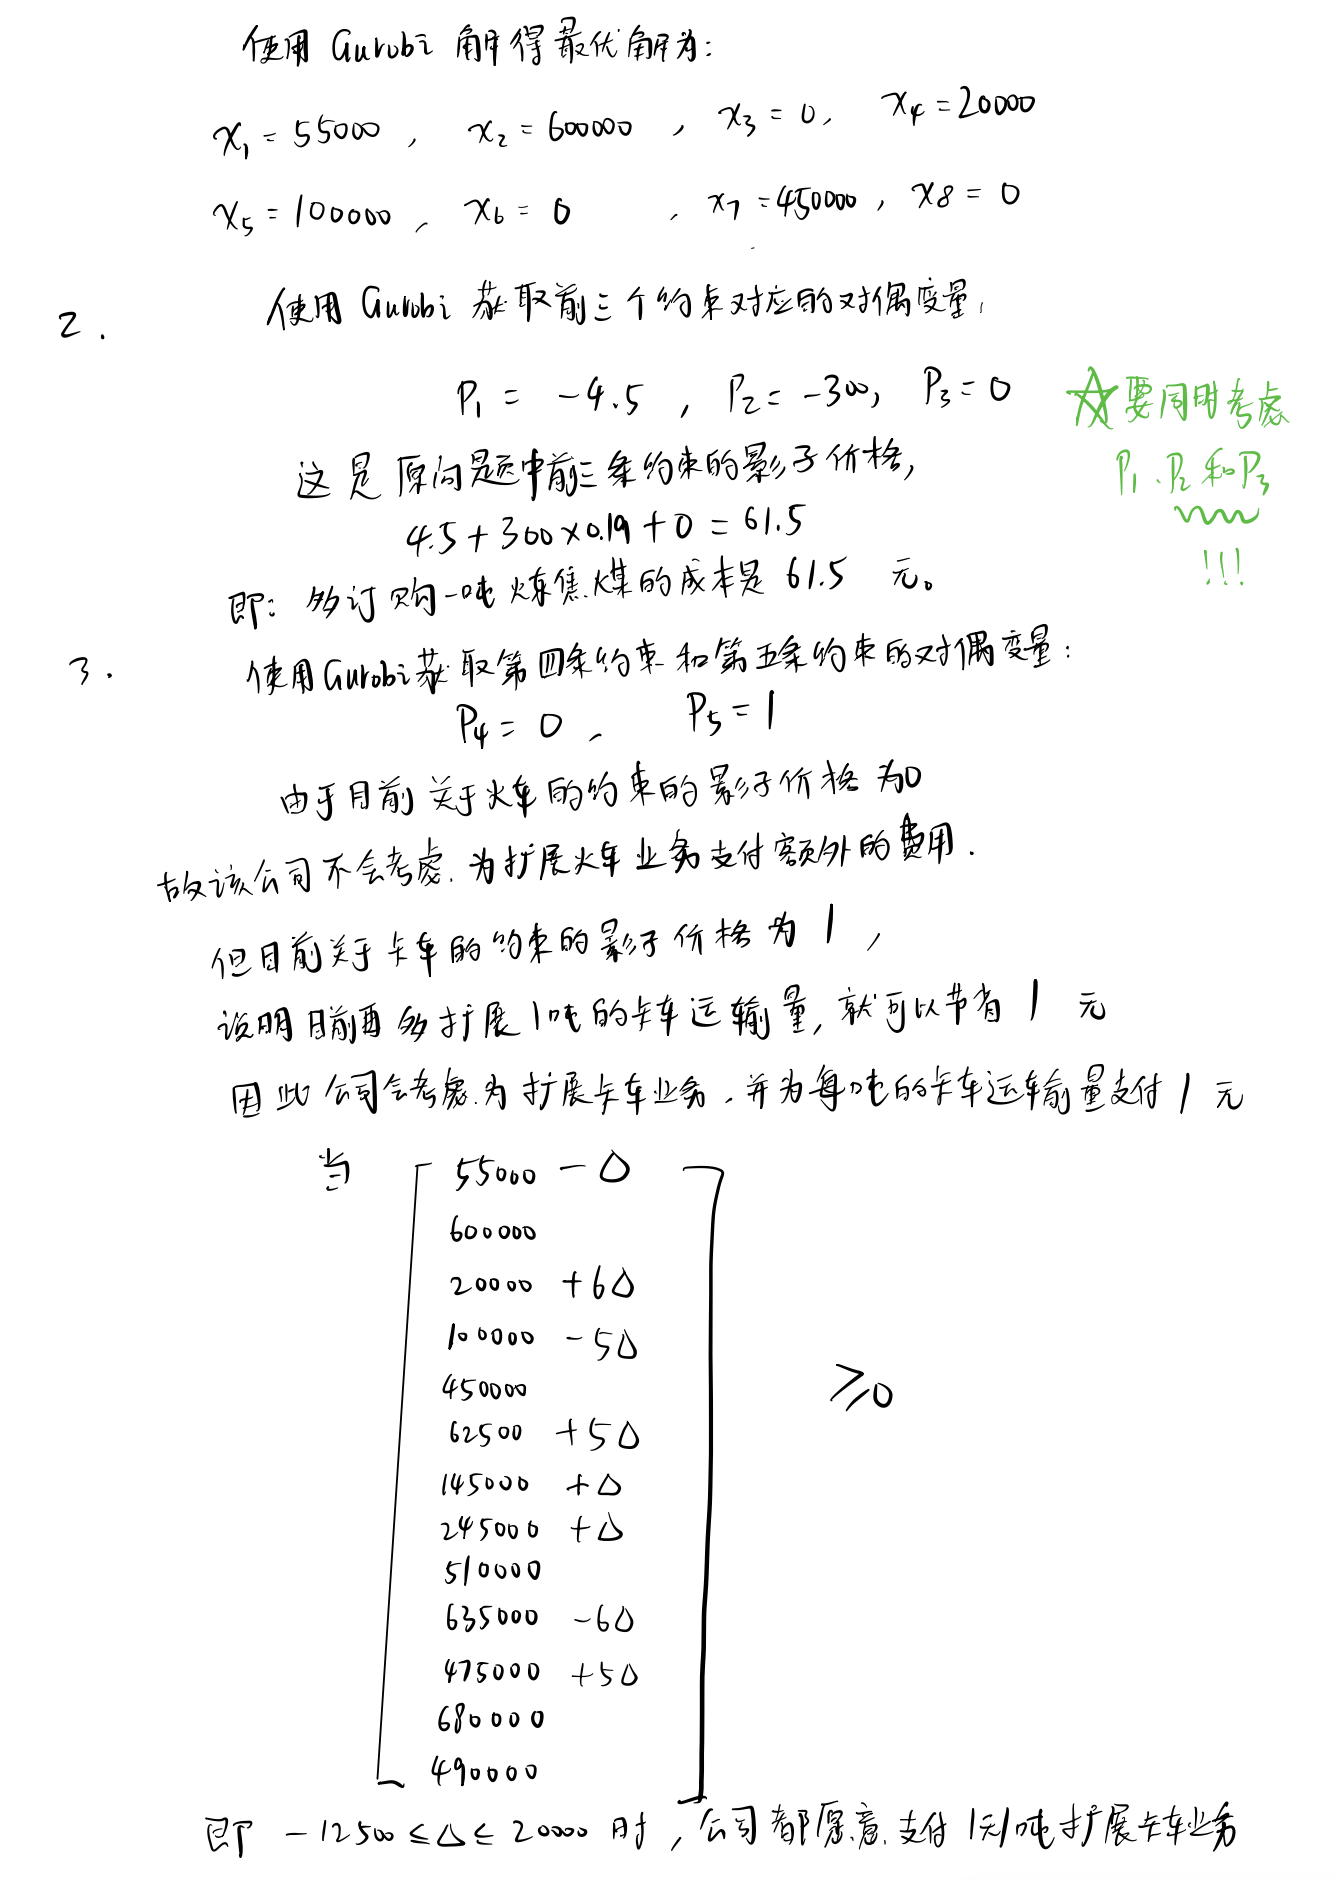 使用 Gurobi 解得最优解为:
x₁ = 55000 , x₂ = 600000 , x₃ = 0, x₄ = 20000
x₅ = 100000 , x₆ = 0 , x₇ = 450000 , x₈ = 0
2. 使用 Gurobi 获取前三个约束对应的对偶变量,
P₁ = -4.5 , P₂ = -300, P₃ = 0
☆要同时考虑
P₁、P₂和P₃
!!!
这是原问题中前三条约束的影子价格,
4.5 + 300 × 0.19 + 0 = 61.5
即: 多订购一吨炼焦煤的成本是 61.5 元。
3. 使用Gurobi获取第四条约束和第五条约束的对偶变量:
P₄ = 0 , P₅ = 1
由于目前关于火车的约束的影子价格为0
故该公司不会考虑为扩展火车业务支付额外的费用.
但目前关于卡车的约束的影子价格为 1 ,
说明目前再多扩展1吨的卡车运输量, 就可以节省 1 元
因此公司会考虑为扩展卡车业务, 并为每吨的卡车运输量支付 1 元
当
55000 - Δ
600000
20000 + 6Δ
100000 - 5Δ
450000
62500 + 5Δ
145000 + Δ
245000 + Δ
510000
635000 - 6Δ
475000 + 5Δ
680000
490000
≥0
即 -12500 ≤ Δ ≤ 20000 时, 公司都愿意支付 1元/吨扩展卡车业务